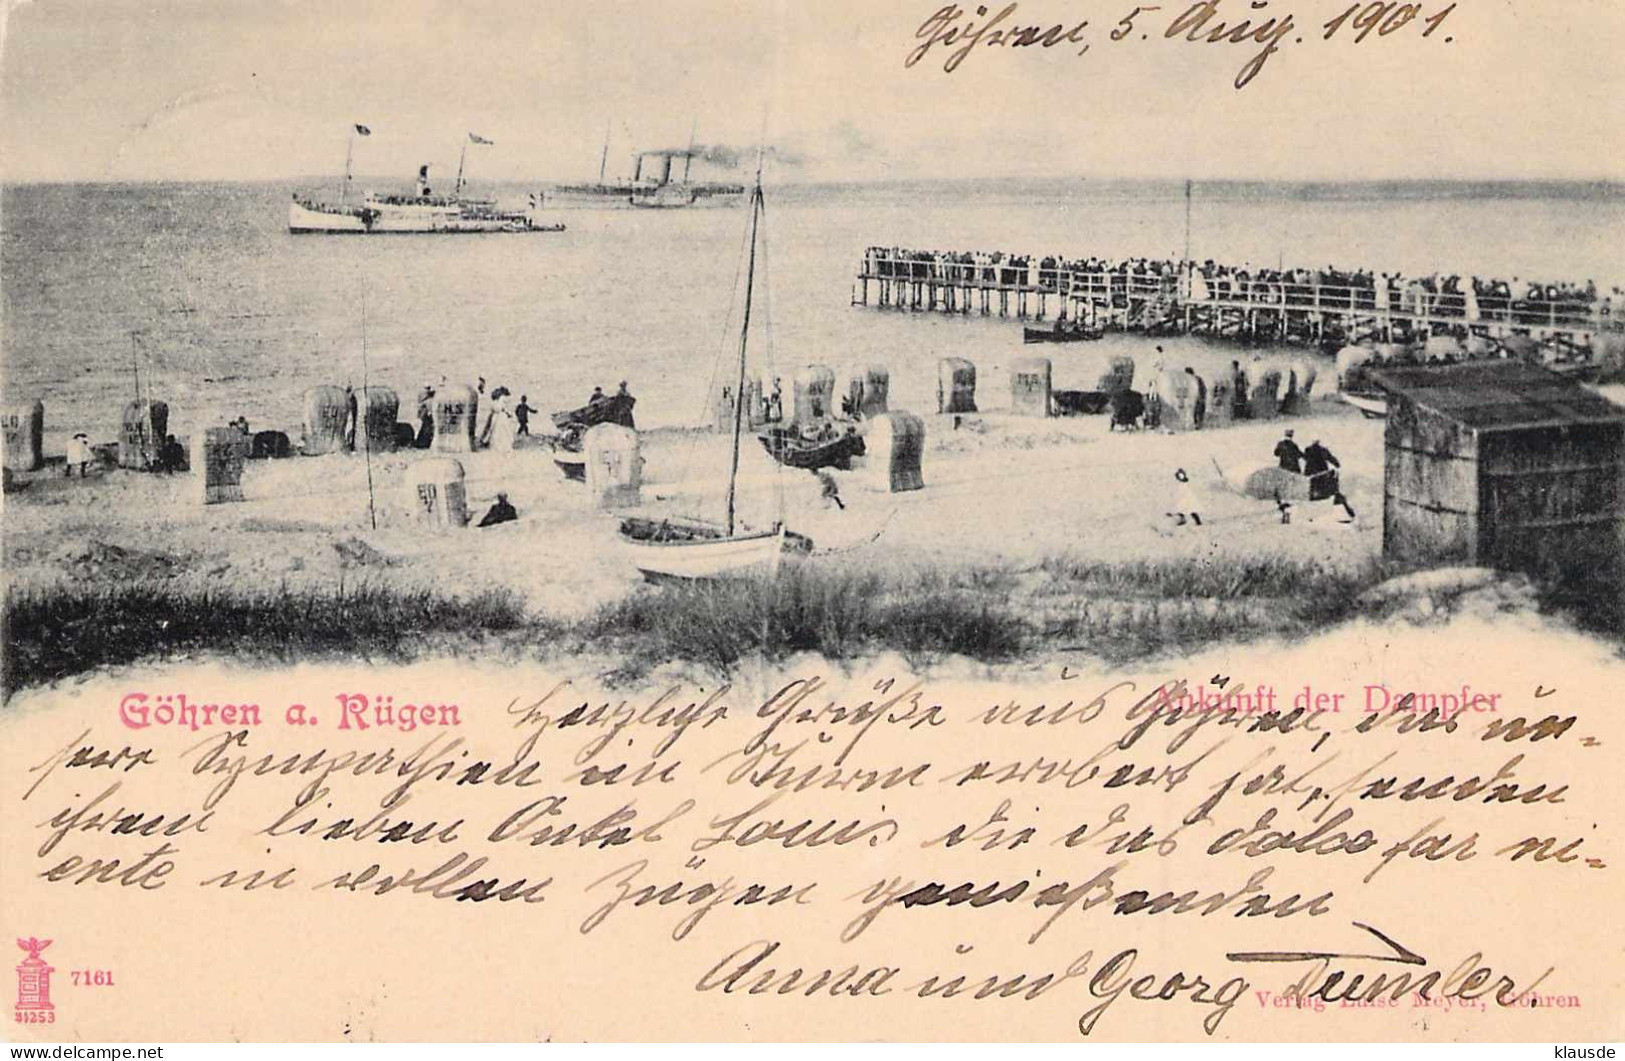 Göhren, 5. Aug. 1901.
Göhren a. Rügen
Ankunft der Dampfer
Herzliche Grüße aus Göhren, das un-
sere Sympathien im Sturm erobert hat, senden
ihrem lieben Onkel Louis die das dolce far ni-
ente in vollen Zügen genießenden
Anna und Georg
7161
31253
Verlag Luise Meyer, Göhren
delcampe.net
klausde